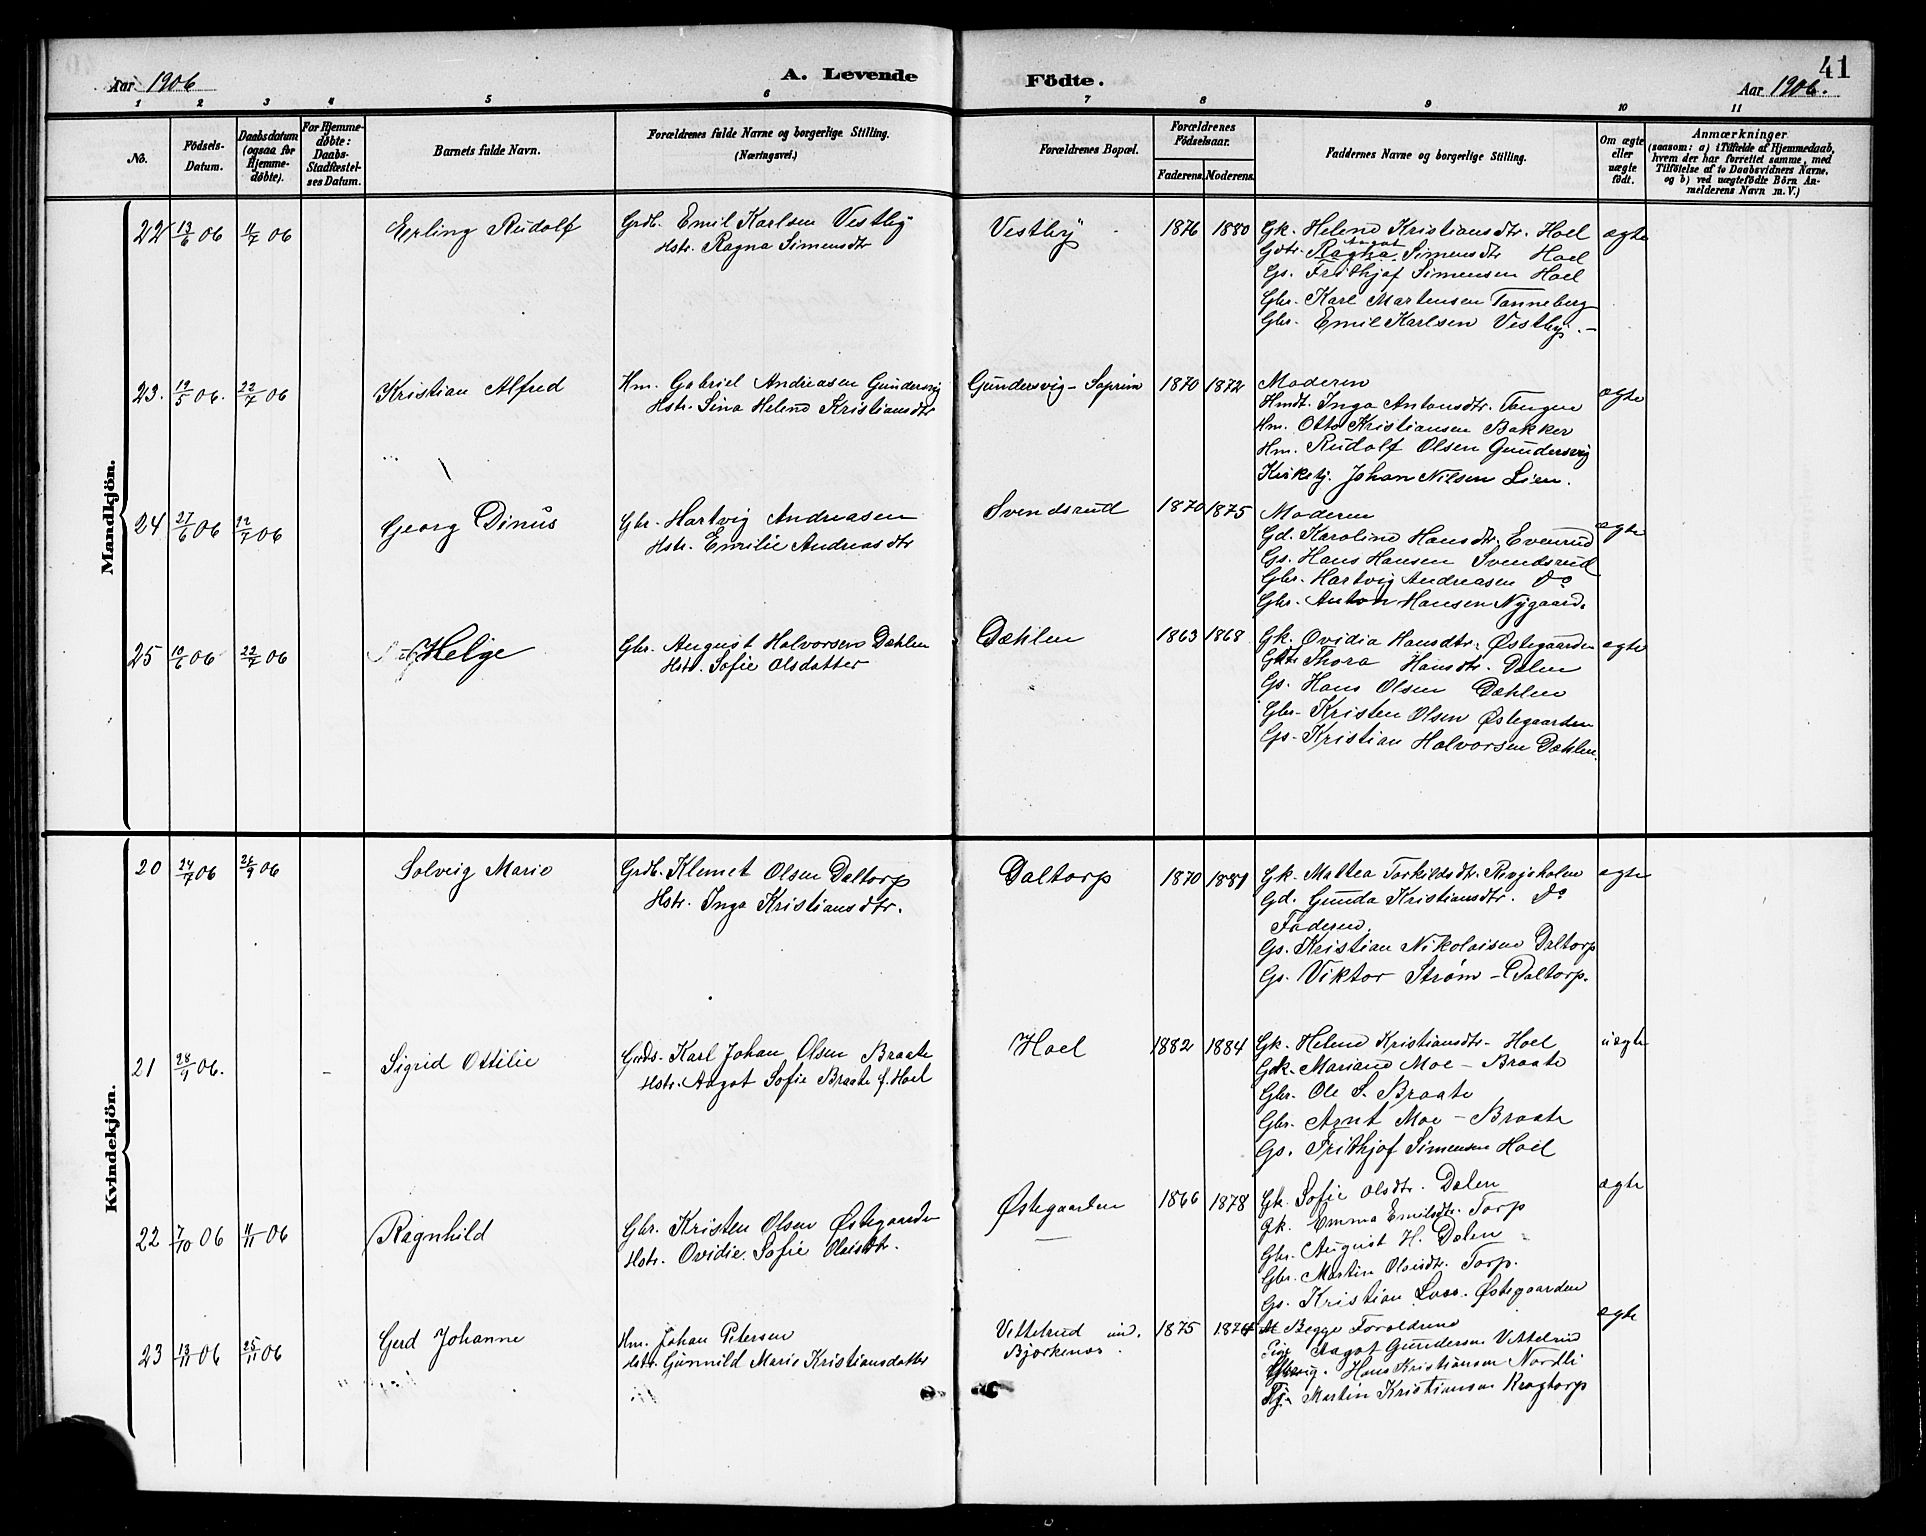 41
Aar 1906
A. Levende
Födte.
Aar 1906.
1 2 3 4 5 6 7 8 9 10 11
No.
Födsels-
Datum.
Daabsdatum
(ogsaa for
Hjemme-
döbte).
For Hjemme-
döbte:
Daabs-
Stadfæstel-
ses Datum.
Barnets fulde Navn.
Forældrenes fulde Navne og borgerlige Stilling.
(Næringsvei.)
Forældrenes Bopæl.
Forældrenes
Födselsaar.
Faderens. Moderens.
Faddernes Navne og borgerlige Stilling.
Om ægte
eller
uægte
födt.
Anmærkninger
(saasom: a) i Tilfælde af Hjemmedaab,
hvem der har forrettet samme, med
Tilföielse af to Daabsvidners Navne,
og b) ved uægtefödte Börn An-
melderens Navn m. V.)
Mandkjön.
22 13/6 06 11/7 06 Erling Rudolf
Grdb. Emil Karlsen Vestby
Hstr. Ragna Simensdtr
Vestby 1876 1880
Gk. Helene Kristiansdtr. Hoel
Aagot
Gdtr. Ragna Simensdtr Hoel
Gs. Frithjof Simensen Hoel
Gbr. Karl Martensen Tanneberg
Gbr. Emil Karlsen Vestby. -
ægte
23. 19/5 06. 22/7 06 Kristian Alfred
Hm. Gabriel Andreasen Gundersvig
Hstr. Sina Helene Kristiansdtr
Gundersvig - Saprim 1870 1872
Moderen
Hmdt. Inga Antonsdtr. Tangen
Hm. Otto Kristiansen Bakker
Hm. Rudolf Olsen Gundersvig
Kirketj. Johan Nilsen Lien.
ægte
24 27/6 06 22/7 06 Georg Dinus
Gbr. Hartvig Andreasen
Hstr. Emilie Andreasdtr
Svendsrud 1870 1875
Moderen
Gd. Karoline Hansdtr. Evenrud
Gs. Hans Hansen Svendsrud
Gbr. Hartvig Andreasen Do
Gbr. Anton Hansen Nygaard.
ægte
25 10/6 06 22/7 06 Helge
Gbr. August Halvorsen Dæhlen
Hstr. Sofie Olsdatter
Dæhlen 1863 1868
Gk. Ovidia Hansdtr. Østegaarden
Gdtr Thora Hansdtr. Dalen
Gs. Hans Olsen Dæhlen
Gbr. Kristen Olsen Østegaarden
Gs. Kristian Halvorsen Dæhlen.
ægte
Kvindekjön.
20 24/7 06 26/9 06 Solveig Marie
Grdb. Klemet Olsen Daltorp
Hstr. Inga Kristiansdtr.
Daltorp 1870 1881
Gk. Mattea Torkildsdtr. Røsjøholen
Gd. Gunda Kristiansdtr. Do
Faderen.
Gs. Kristian Nikolaisen Daltorp
Gs. Viktor Strøm - Daltorp.
ægte
21 28/1 06. Sigrid Ottilie
Grds. Karl Johan Olsen Braate
Hstr. Aagot Sofie Braate f. Hoel
Hoel 1882 1884
Gk. Helene Kristiansdtr. Hoel
Gdk. Mariane Moe - Braate
Gbr. Ole S. Braate
Gbr. Arnt Moe - Braate
Gs. Frithjof Simensen Hoel
uægte
22 7/10 06 11/11 06 Ragnhild
Gbr. Kristen Olsen Østegaarden
Hstr. Ovidie Sofie Olsdtr.
Østegaarden 1866 1878
Gk. Sofie Olsdtr. Dalen
gk. Emma Emilsdtr. Torp
Gbr. August H. Dalen
Gbr. Martin Olsen Torp.
Gs. Kristian Østegaarden
ægte
23 13/11 06 25/11 06 Gerd Johanne
Hm. Johan Petersen
Hstr. Gunnild Marie Kristiansdatter
Vittelrud ind.
Bjørkenæs. 1875 1874
Begge Forældrene
Pige Aagot Gundersen Vittelrud
Hans Kristiansen Nordli
Tj. Martin Kristiansen Kragtorp
ægte